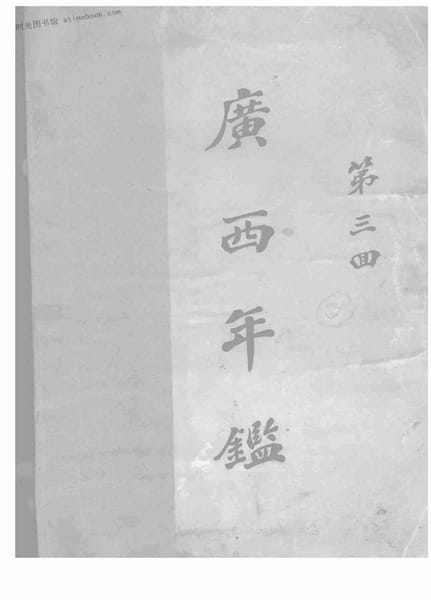 时光图书馆 atimebook.com
第三回
廣西年鑑